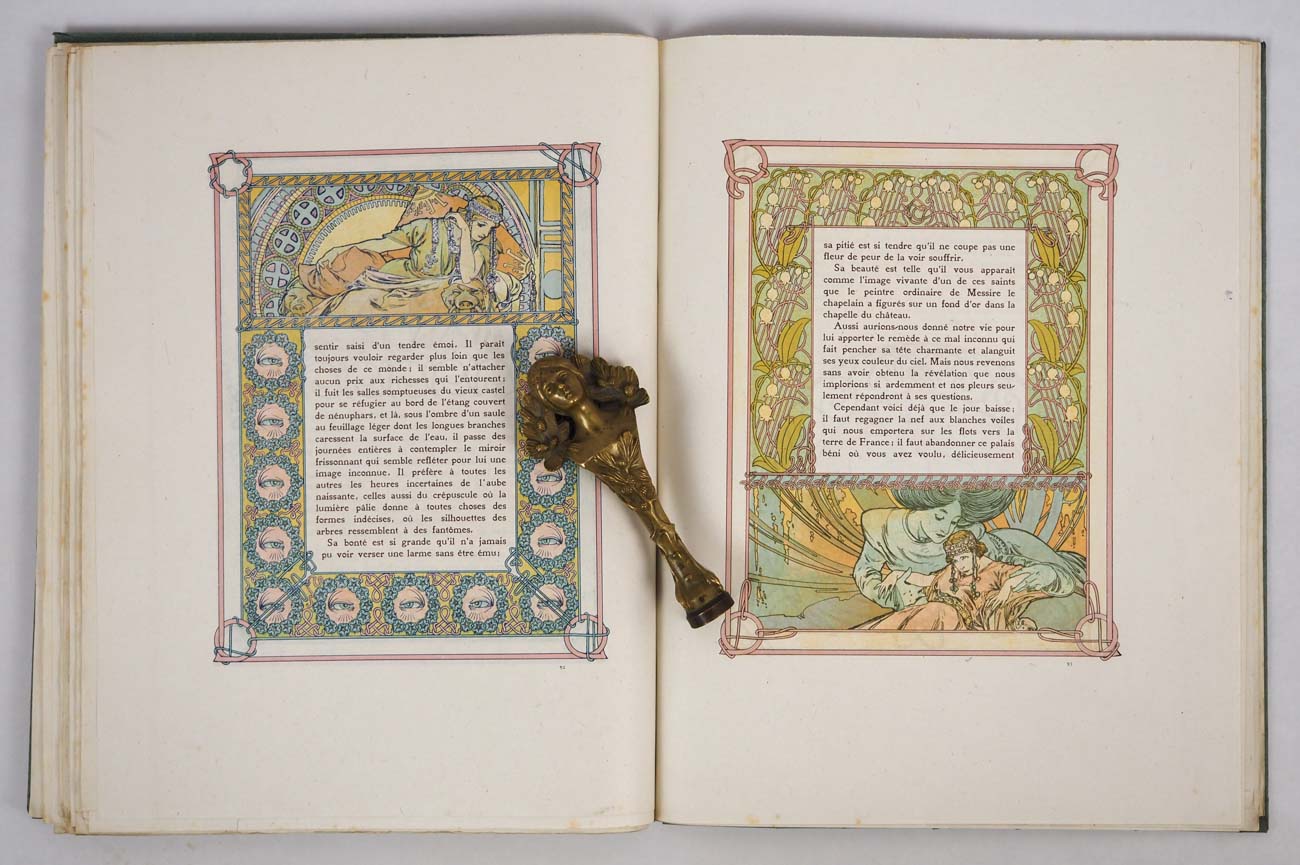 sentir saisi d'un tendre émoi. Il paraît
toujours vouloir regarder plus loin que les
choses de ce monde; il semble n'attacher
aucun prix aux richesses qui l'entourent;
il fuit les salles somptueuses du vieux castel
pour se réfugier au bord de l'étang couvert
de nénuphars, et là, sous l'ombre d'un saule
au feuillage léger dont les longues branches
caressent la surface de l'eau, il passe des
journées entières à contempler le miroir
frissonnant qui semble refléter pour lui une
image inconnue. Il préfère à toutes les
autres les heures incertaines de l'aube
naissante, celles aussi du crépuscule où la
lumière pâlie donne à toutes choses des
formes indécises, où les silhouettes des
arbres ressemblent à des fantômes.
Sa bonté est si grande qu'il n'a jamais
pu voir verser une larme sans être ému;
92
sa pitié est si tendre qu'il ne coupe pas une
fleur de peur de la voir souffrir.
Sa beauté est telle qu'il vous apparaît
comme l'image vivante d'un de ces saints
que le peintre ordinaire de Messire le
chapelain a figurés sur un fond d'or dans la
chapelle du château.
Aussi aurions-nous donné notre vie pour
lui apporter le remède à ce mal inconnu qui
fait pencher sa tête charmante et alanguit
ses yeux couleur du ciel. Mais nous revenons
sans avoir obtenu la révélation que nous
implorions si ardemment et nos pleurs seu-
lement répondront à ses questions.
Cependant voici déjà que le jour baisse;
il faut regagner la nef aux blanches voiles
qui nous emportera sur les flots vers la
terre de France; il faut abandonner ce palais
béni où vous avez voulu, délicieusement
93